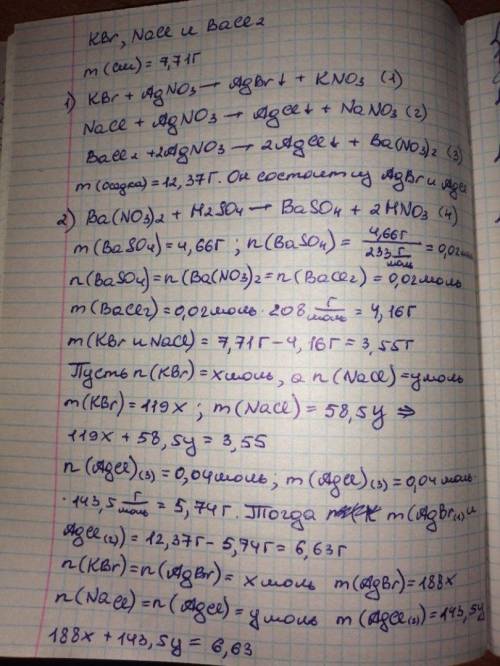 KBr, NaCl и BaCl2
m(см) = 7,71г
1) KBr + AgNO3 → AgBr↓ + KNO3 (1)
NaCl + AgNO3 → AgCl↓ + NaNO3 (2)
BaCl2 + 2AgNO3 → 2AgCl↓ + Ba(NO3)2 (3)
m(осадка) = 12,37г. Он состоит из AgBr и AgCl
2) Ba(NO3)2 + H2SO4 → BaSO4 + 2HNO3 (4)
m(BaSO4) = 4,66г ; n(BaSO4) = 4,66г / 233 г/моль = 0,02 моль
n(BaSO4) = n(Ba(NO3)2 = n(BaCl2) = 0,02 моль
m(BaCl2) = 0,02 моль · 208 г/моль = 4,16г
m(KBr и NaCl) = 7,71г - 4,16г = 3,55г
Пусть n(KBr) = x моль, а n(NaCl) = y моль
m(KBr) = 119x ; m(NaCl) = 58,5y ⇒
119x + 58,5y = 3,55
n(AgCl)(3) = 0,04 моль ; m(AgCl)(3) = 0,04 моль ·
· 143,5 г/моль = 5,74г. Тогда m(AgBr(1) и
AgCl(2)) = 12,37г - 5,74г = 6,63г
n(KBr) = n(AgBr) = x моль m(AgBr) = 188x
n(NaCl) = n(AgCl) = y моль m(AgCl(2)) = 143,5y
188x + 143,5y = 6,63